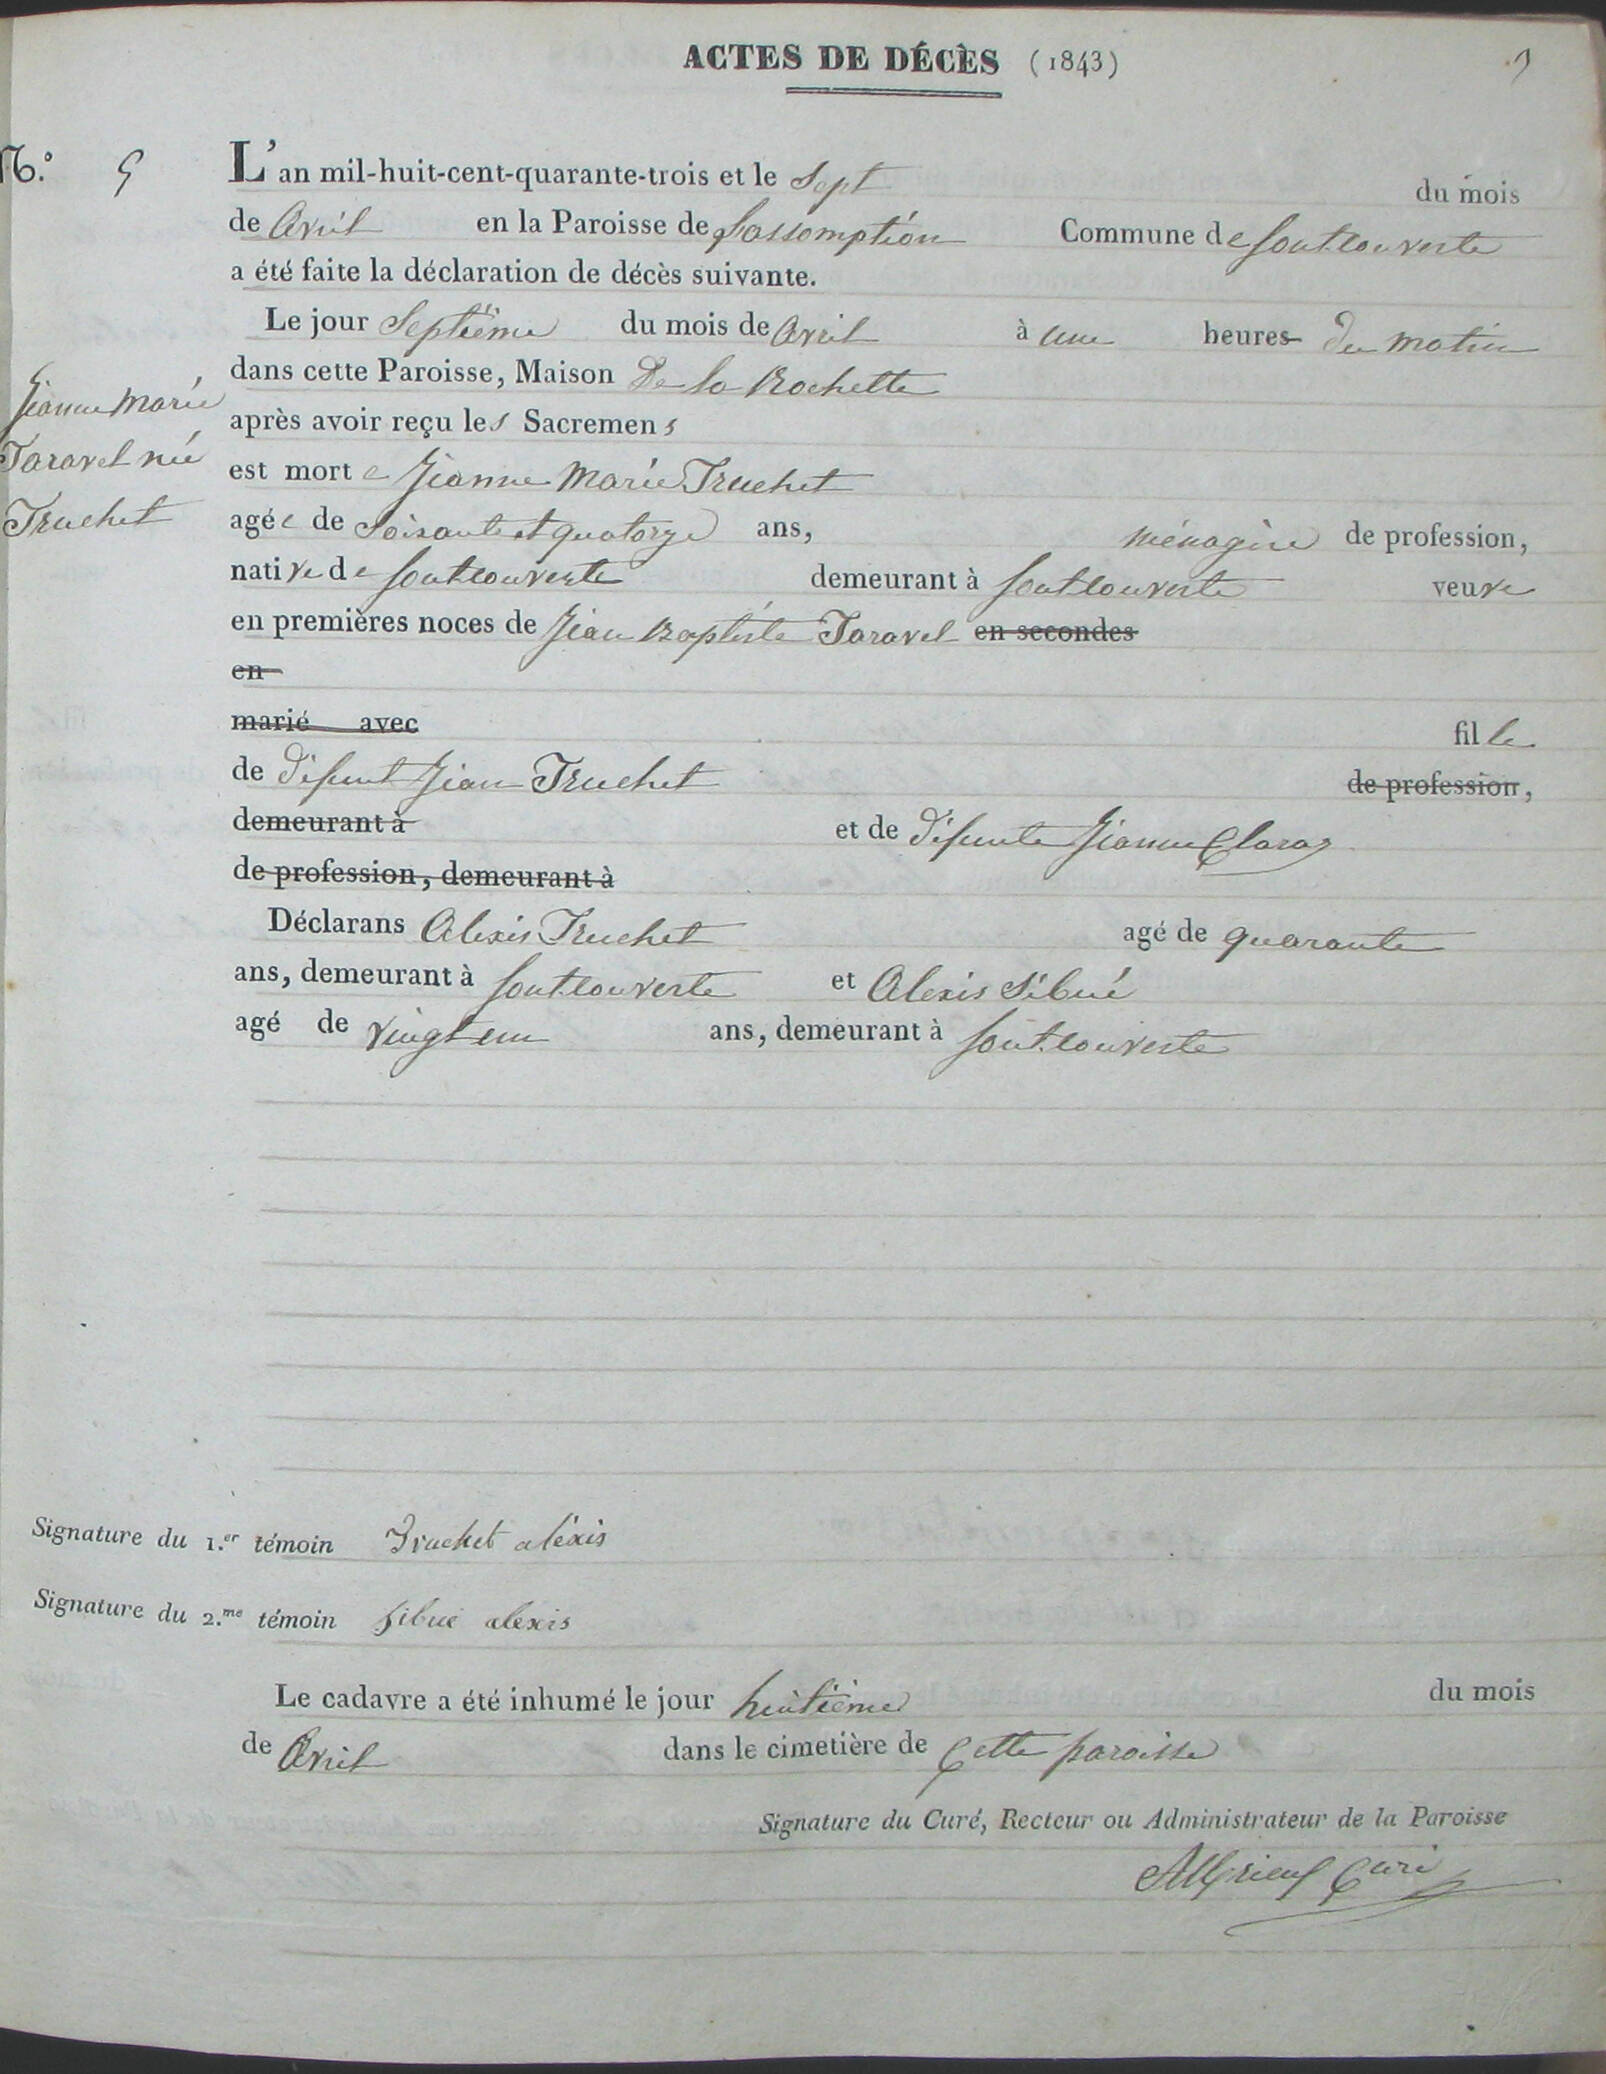 ACTES DE DÉCÈS (1843)
N.º 5 L'an mil-huit-cent-quarante-trois et le Sept du mois
de Avril en la Paroisse de Lassomption Commune de fontcouverte
a été faite la déclaration de décès suivante.
Le jour Septième du mois de Avril à une heures du matin
dans cette Paroisse, Maison De la Rochette
après avoir reçu les Sacremens
Jeanne Marie
Taravel née
Truchet
est morte Jeanne Marie Truchet
agée de Soisante et quatorze ans, ménagère de profession,
native de fontcouverte demeurant à fontcouverte veuve
en premières noces de Jean Baptiste Taravel en secondes
en
marié avec fille
de défunt Jean Truchet de profession,
demeurant à et de défunte Jeanne Claraz
de profession, demeurant à
Déclarans Alexis Truchet agé de quarante
ans, demeurant à fontcouverte et Alexis Sibué
agé de vingt un ans, demeurant à fontcouverte
Signature du 1.er témoin Truchet aléxis
Signature du 2.me témoin Sibué alexis
Le cadavre a été inhumé le jour huitième du mois
de Avril dans le cimetière de Cette paroisse
Signature du Curé, Recteur ou Administrateur de la Paroisse
Curé